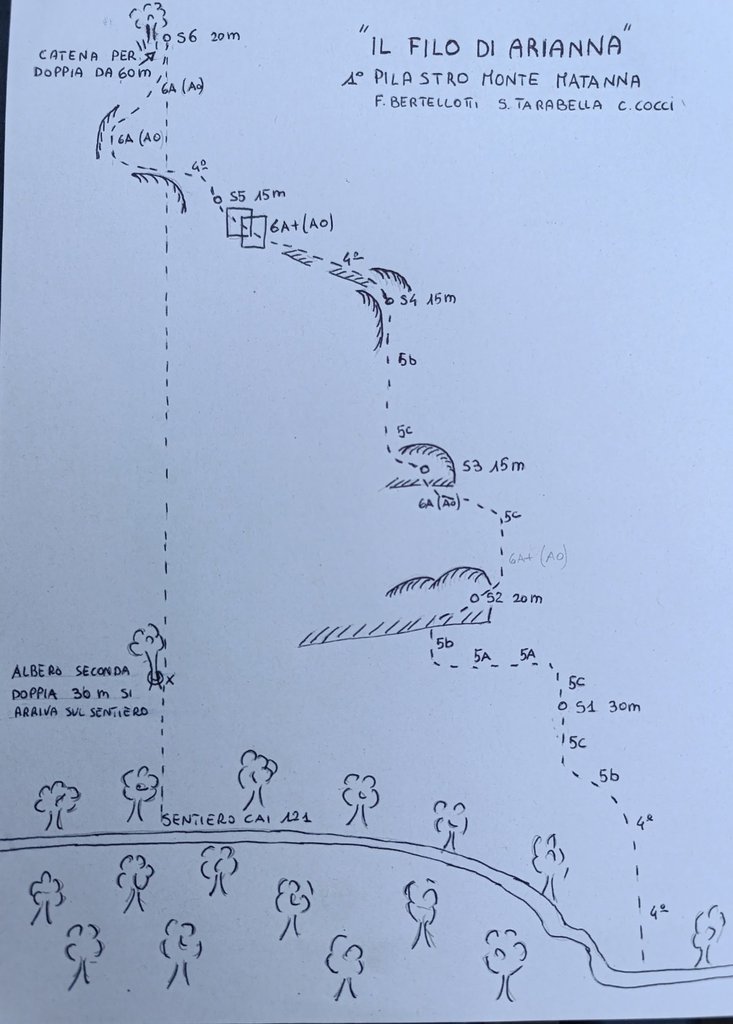 "IL FILO DI ARIANNA"
1º PILASTRO MONTE MATANNA
F. BERTELLOTTI S. TARABELLA C. COCCI
S6 20m
CATENA PER
DOPPIA DA 60m
6A (A0)
6A (A0)
4º
S5 15m
6A+(A0)
4º
S4 15m
5b
5c
S3 15m
6A(A0)
5c
6A+ (A0)
S2 20m
5b
5A 5A
5c
S1 30m
5c
5b
4º
4º
ALBERO SECONDA
DOPPIA 30 m SI
ARRIVA SUL SENTIERO
X
SENTIERO CAI 121